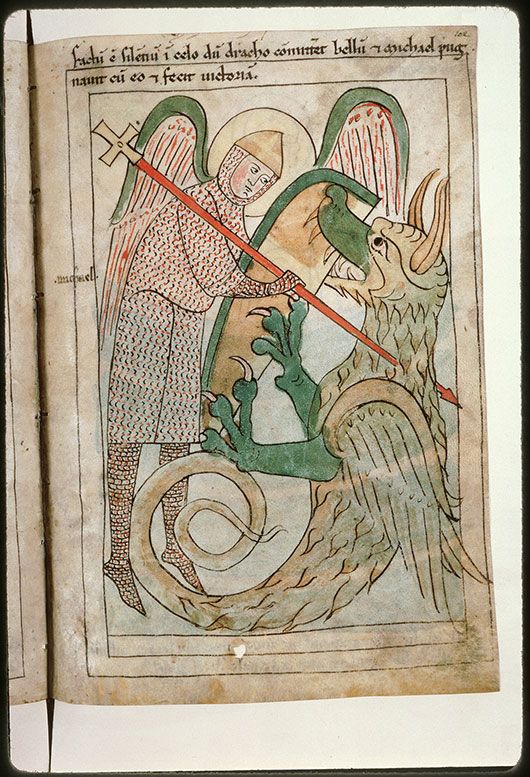 factū ē silenciū ī celo dū dracho cōmitt̄et bellū ⁊ michael pug
nauit cū eo ⁊ fecit uictoriā.
michael.